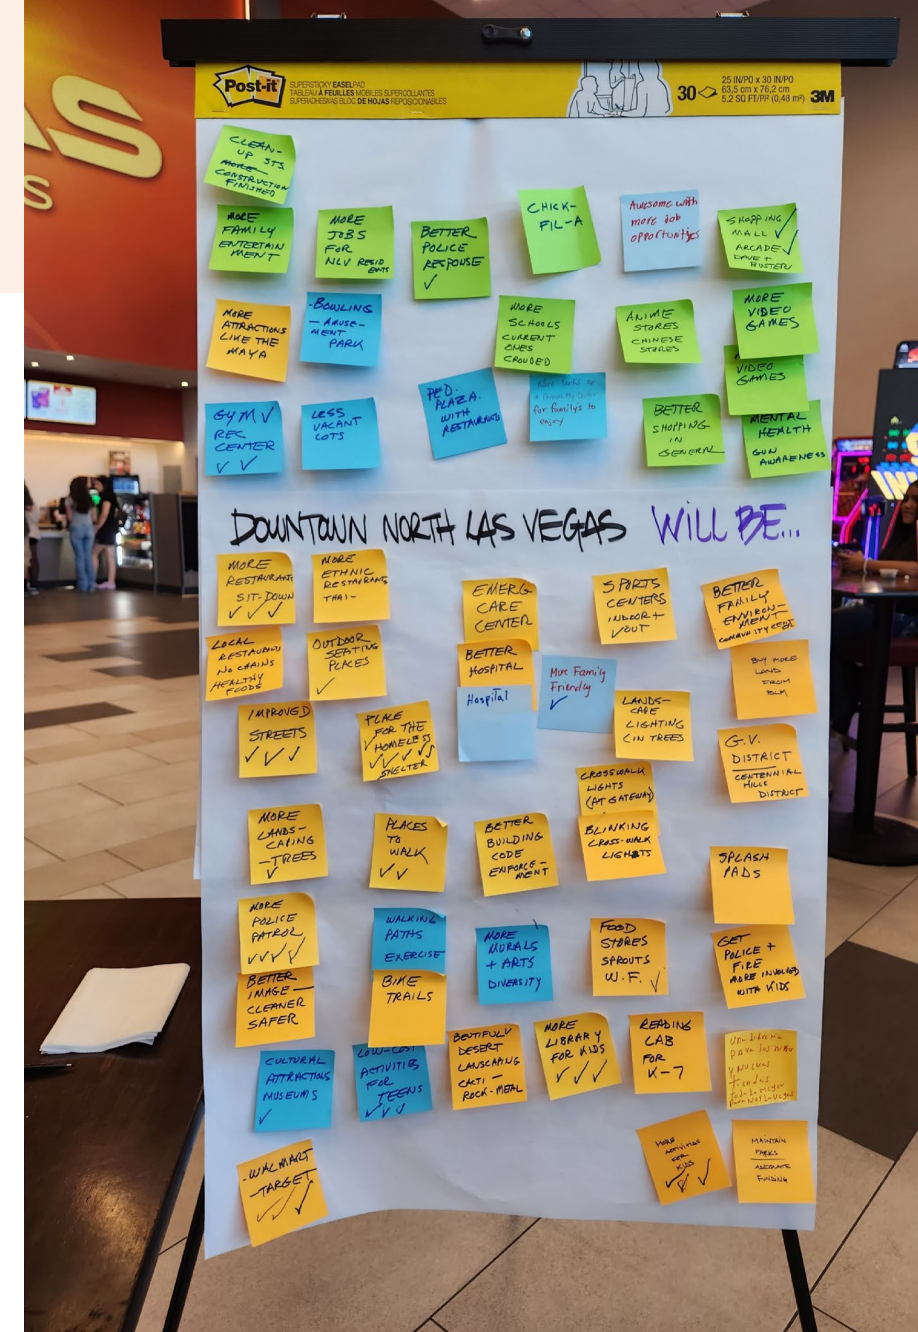 AS
S
Post-it
SUPERSTICKY EASELPAD
TABLEAU À FEUILLES MOBILES SUPERCOLLANTES
SUPERADHESIVAS BLOC DE HOJAS REPOSICIONABLES
30
25 IN/PO x 30 IN/PO
63,5 cm x 76,2 cm
5.2 SQ FT/PI² (0,48 m²)
3M
CLEAN-
UP STS
MORE
CONSTRUCTION
FINISHED
MORE
FAMILY
ENTERTAIN
MENT
MORE
JOBS
FOR
NLV RESID
ENTS
BETTER
POLICE
RESPONSE
✓
CHICK-
FIL-A
Awesome with
more Job
opportunities
SHOPPING ✓
MALL
ARCADE ✓
DAVE +
BUSTERS
MORE
ATTRACTIONS
LIKE THE
MAYA
-BOWLING
-AMUSE-
MENT
PARK
MORE
SCHOOLS
CURRENT
ONES
CROUDED
ANIME
STORES
CHINESE
STORES
MORE
VIDEO
GAMES
VIDEO
GAMES
GYM ✓
REC
CENTER
✓ ✓
LESS
VACANT
LOTS
PED.
PLAZA.
WITH
RESTAURANTS
for family's to
enjoy
BETTER
SHOPPING
IN
GENERAL
MENTAL
HEALTH
GUN
AWARENESS
DOWNTOWN NORTH LAS VEGAS WILL BE...
MORE
RESTAURANTS
SIT-DOWN
✓ ✓ ✓
MORE
ETHNIC
RESTAURANTS
THAI-
EMERG
CARE
CENTER
SPORTS
CENTERS
INDOOR +
✓ OUT
BETTER
FAMILY
ENVIRON-
MENT
LOCAL
RESTAURANTS
NO CHAINS
HEALTHY
FOODS
OUTDOOR
SEATING
PLACES
✓
BETTER
HOSPITAL
Hospital
More Family
Friendly
✓
BUY MORE
LAND
FROM
BLM
IMPROVED
STREETS
✓ ✓ ✓
PLACE
FOR THE
HOMELESS
✓ ✓ ✓ ✓ ✓
SHELTER
LANDS-
CARE
LIGHTING
(IN TREES)
G.V.
DISTRICT
CENTENNIAL
HILLS
DISTRICT
CROSSWALK
LIGHTS
(AT GATEWAY)
BLINKING
CROSS-WALK
LIGHTS
MORE
LANDS-
CAPING
-TREES
✓
PLACES
TO
WALK
✓ ✓
BETTER
BUILDING
CODE
ENFORCE-
MENT
SPLASH
PADS
MORE
POLICE
PATROL
✓ ✓ ✓ ✓
WALKING
PATHS
EXERCISE
MORE
MURALS
+ ARTS
DIVERSITY
FOOD
STORES
SPROUTS
W.F. ✓
GET
POLICE +
FIRE
MORE INVOLVED
WITH KIDS
BETTER
IMAGE-
CLEANER
SAFER
BIKE
TRAILS
CULTURAL
ATTRACTIONS
MUSEUMS
✓
LOW-COST
ACTIVITIES
FOR
TEENS
✓ ✓ ✓
BEUTIFULY
DESERT
LANSCAPING
CACTI-
ROCK-METAL
MORE
LIBRARY
FOR KIDS
✓ ✓ ✓
READING
LAB
FOR
K-7
para los niños
y nuevas
tiendas
-WALMART
-TARGET
✓ ✓ ✓
MORE
ACTIVITIES
FOR
KIDS
✓ ✓ ✓
MAINTAIN
PARKS
ADEQUATE
FUNDING